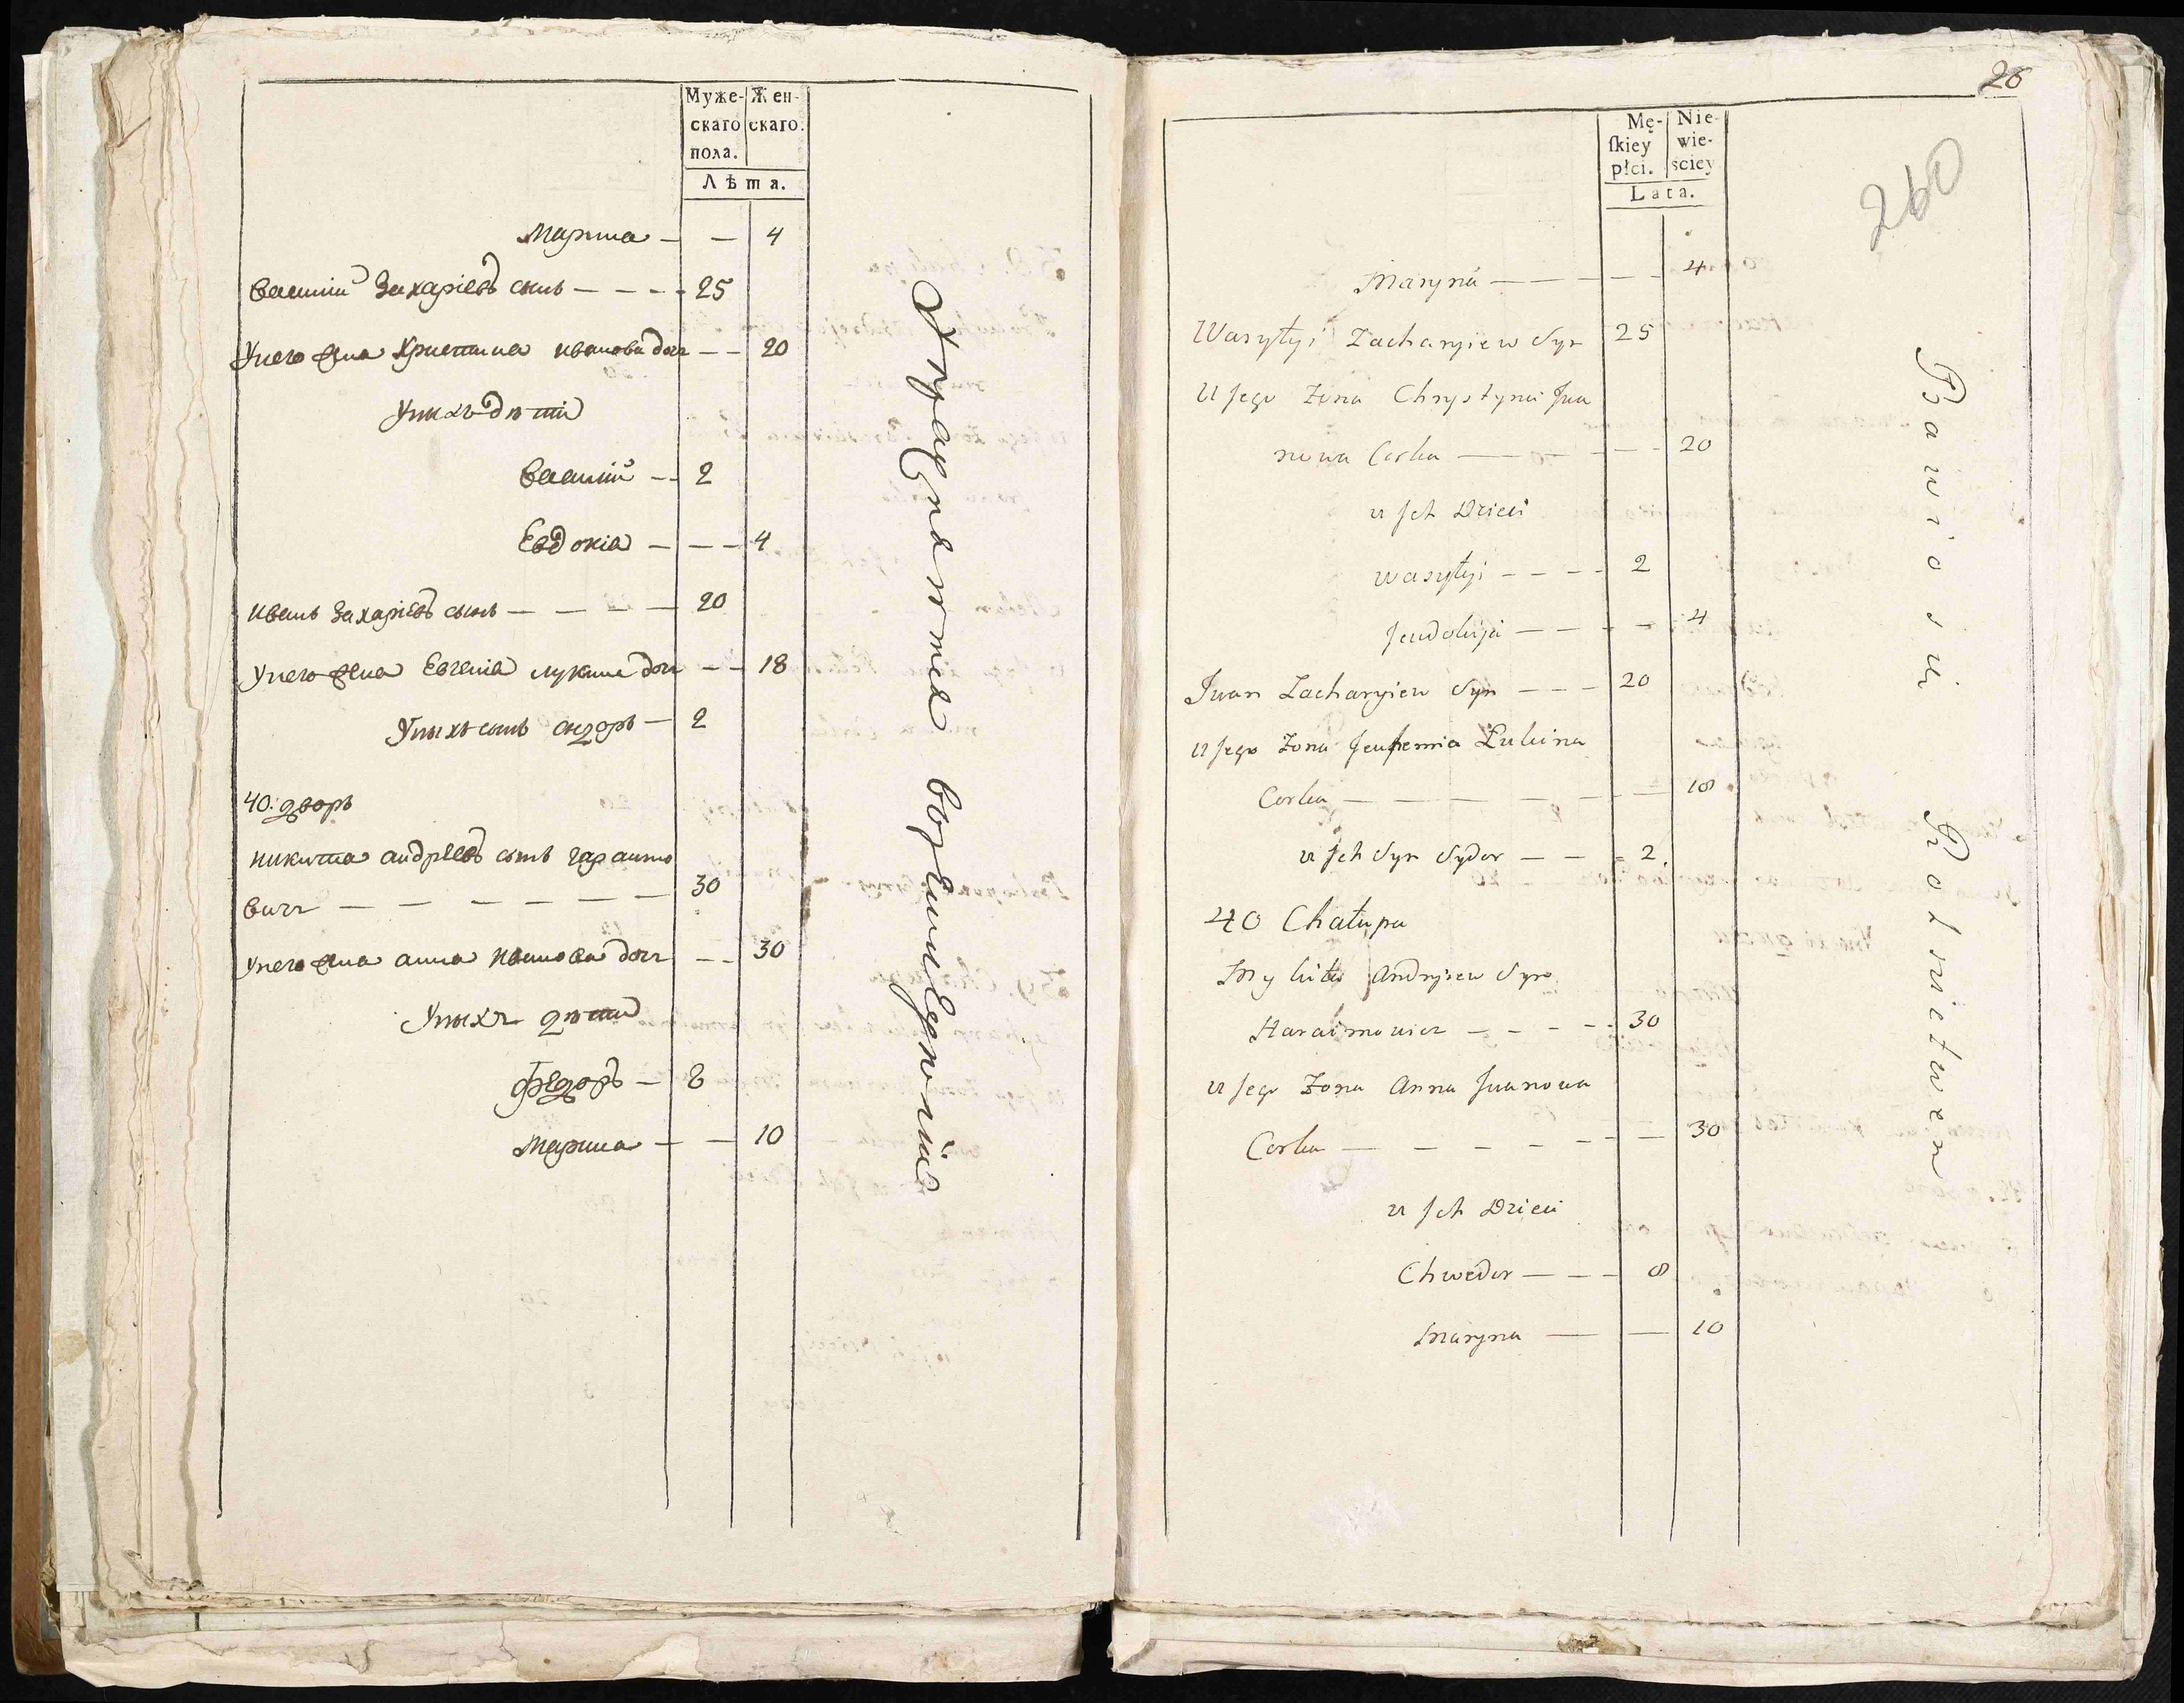 Муже-
скаго
пола.
Жен-
скаго.
Лѣта.
Марина — — 4
Василій Захаріевъ сынъ — — — - 25
У него жена Христина Иванова дочь — — 20
У нихъ дѣти
Василій — - 2
Евдокіа — — — 4
Иванъ Захаріевъ сынъ — — — — 20
У него жена Евгеніа Лукина дочь — — 18
У нихъ сынъ Сидоръ — 2
40. дворъ
Никита Андреевъ сынъ Гараимо
вичъ — — — — — — 30
У него жена Анна Иванова дочь — — 30
У нихъ дѣти
Федоръ — 8
Марина — — 10
26
260
Mę-
ſkiey
płci.
Nie-
wie-
ściey
Lata.
Maryna — — — — 4
Wasyłyi Zacharyiew Syn 25
U Jego Żona Chrystyna Jwa
nowa Corka — — — — 20
u Jch Dzieci
wasyłyi - - - - 2
Jeudokija — — — — 4
Jwan Zacharyiew Syn — — - 20
u Jego Żona Jeufiemia Łukina
Corka — — — — — — 18
u Jch Syn Sydor — — - 2.
40 Chałupa
Mykita Andryiew Syn
Haraimowicz — - - - - 30
u Jego Żona Anna Jwanowa
Corka — — - - - - — 30
u Jch Dzieci
Chwedor — — — 8
Maryna — — 10